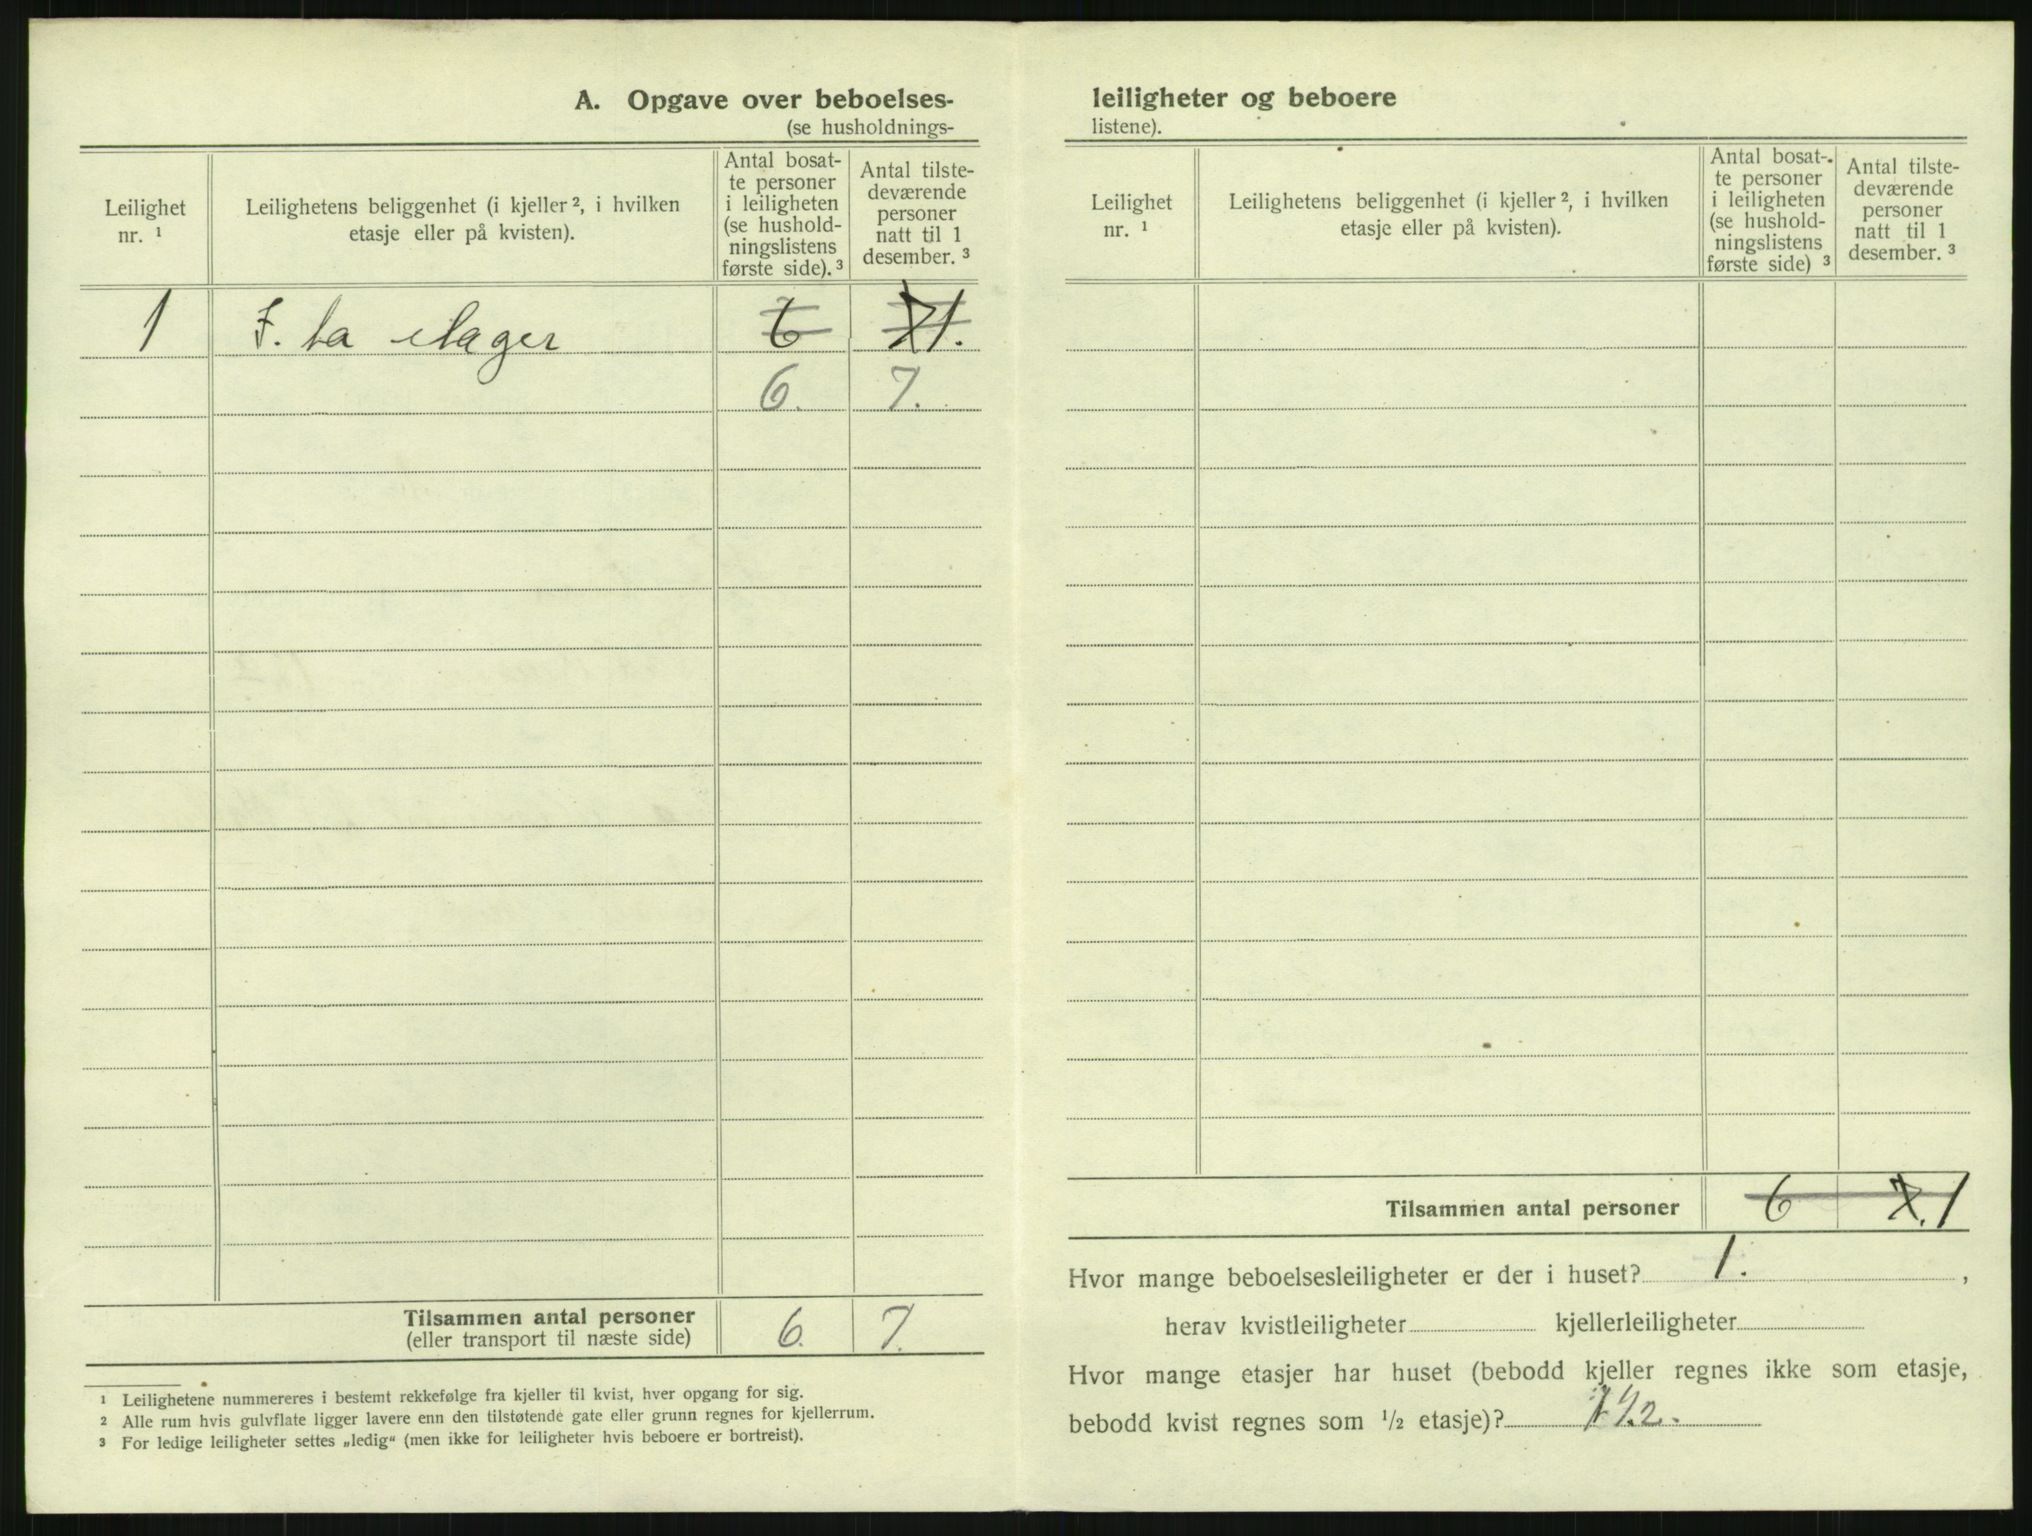 A. Opgave over beboelses-
(se husholdnings-
Leilighet
nr. ¹
Leilighetens beliggenhet (i kjeller ², i hvilken
etasje eller på kvisten).
Antal bosat-
te personer
i leiligheten
(se hushold-
ningslistens
første side). ³
Antal tilste-
deværende
personer
natt til 1
desember. ³
1 I. ta etager 6 7 1.
6. 7.
Tilsammen antal personer
(eller transport til næste side) 6. 7.
¹ Leilighetene nummereres i bestemt rekkefølge fra kjeller til kvist, hver opgang for sig.
² Alle rum hvis gulvflate ligger lavere enn den tilstøtende gate eller grunn regnes for kjellerrum.
³ For ledige leiligheter settes „ledig“ (men ikke for leiligheter hvis beboere er bortreist).
leiligheter og beboere
listene).
Leilighet
nr. ¹
Leilighetens beliggenhet (i kjeller ², i hvilken
etasje eller på kvisten).
Antal bosat-
te personer
i leiligheten
(se hushold-
ningslistens
første side) ³
Antal tilste-
deværende
personer
natt til 1
desember. ³
Tilsammen antal personer 6 7. 1
Hvor mange beboelsesleiligheter er der i huset? 1. ,
herav kvistleiligheter kjellerleiligheter
Hvor mange etasjer har huset (bebodd kjeller regnes ikke som etasje,
bebodd kvist regnes som ½ etasje)? 1 ½.